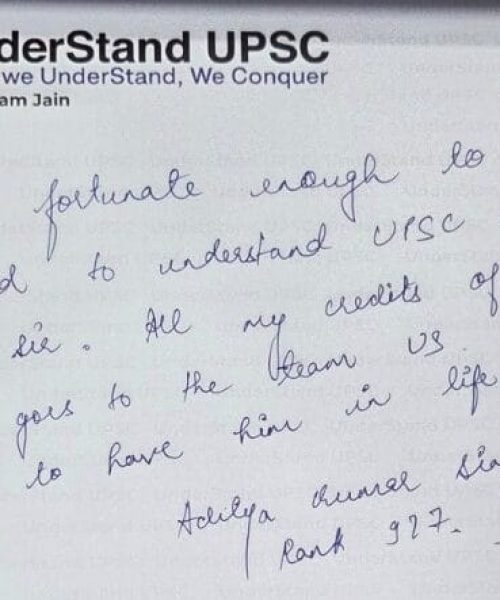 derStand UPSC
we UnderStand, We Conquer
am Jain
fortunate enough to
d to understand UPSC
sir. All my credits of
goes to the team US.
to have him in life
Aditya Kumar Sin
Rank 927.